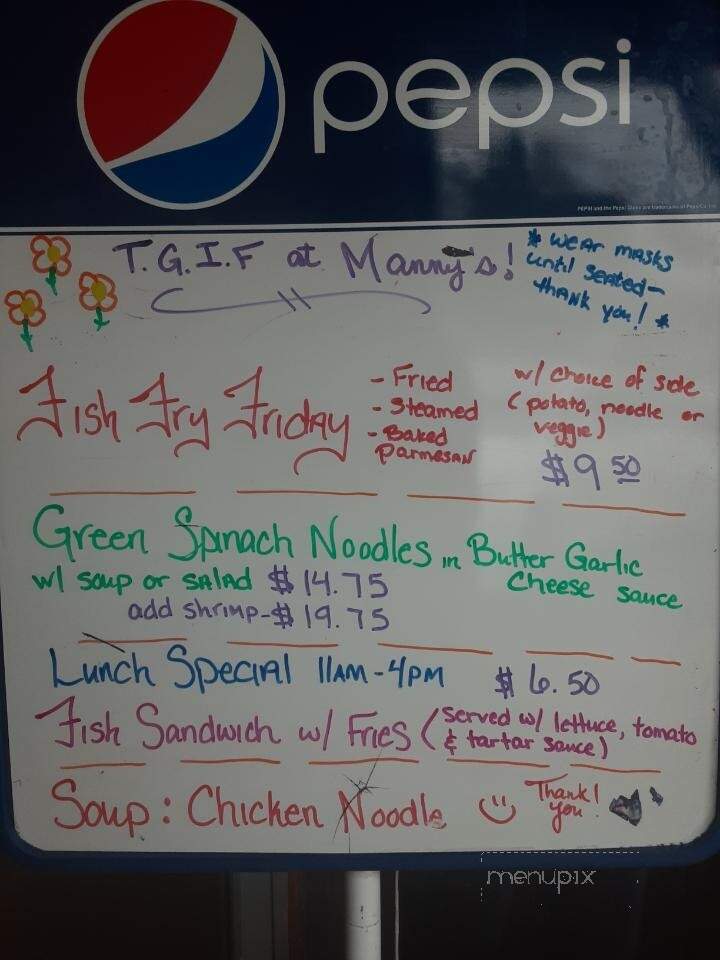 pepsi
PEPSI and the Pepsi Globe are trademarks of PepsiCo, Inc.
T.G.I.F at Manny's!
* WEAR MASKS
until SEATED-
thANK you! *
Fish Fry Friday
- Fried
- Steamed
- Baked
Parmesan
w/ choice of side
(potato, noodle or
veggie)
$9 50
Green Spinach Noodles in Butter Garlic
Cheese sauce
w/ soup or salad $14.75
add shrimp-$19.75
Lunch Special 11AM-4PM $6.50
Fish Sandwich w/ Fries (served w/ lettuce, tomato
& tartar sauce)
Soup: Chicken Noodle
Thank!
you
menupix